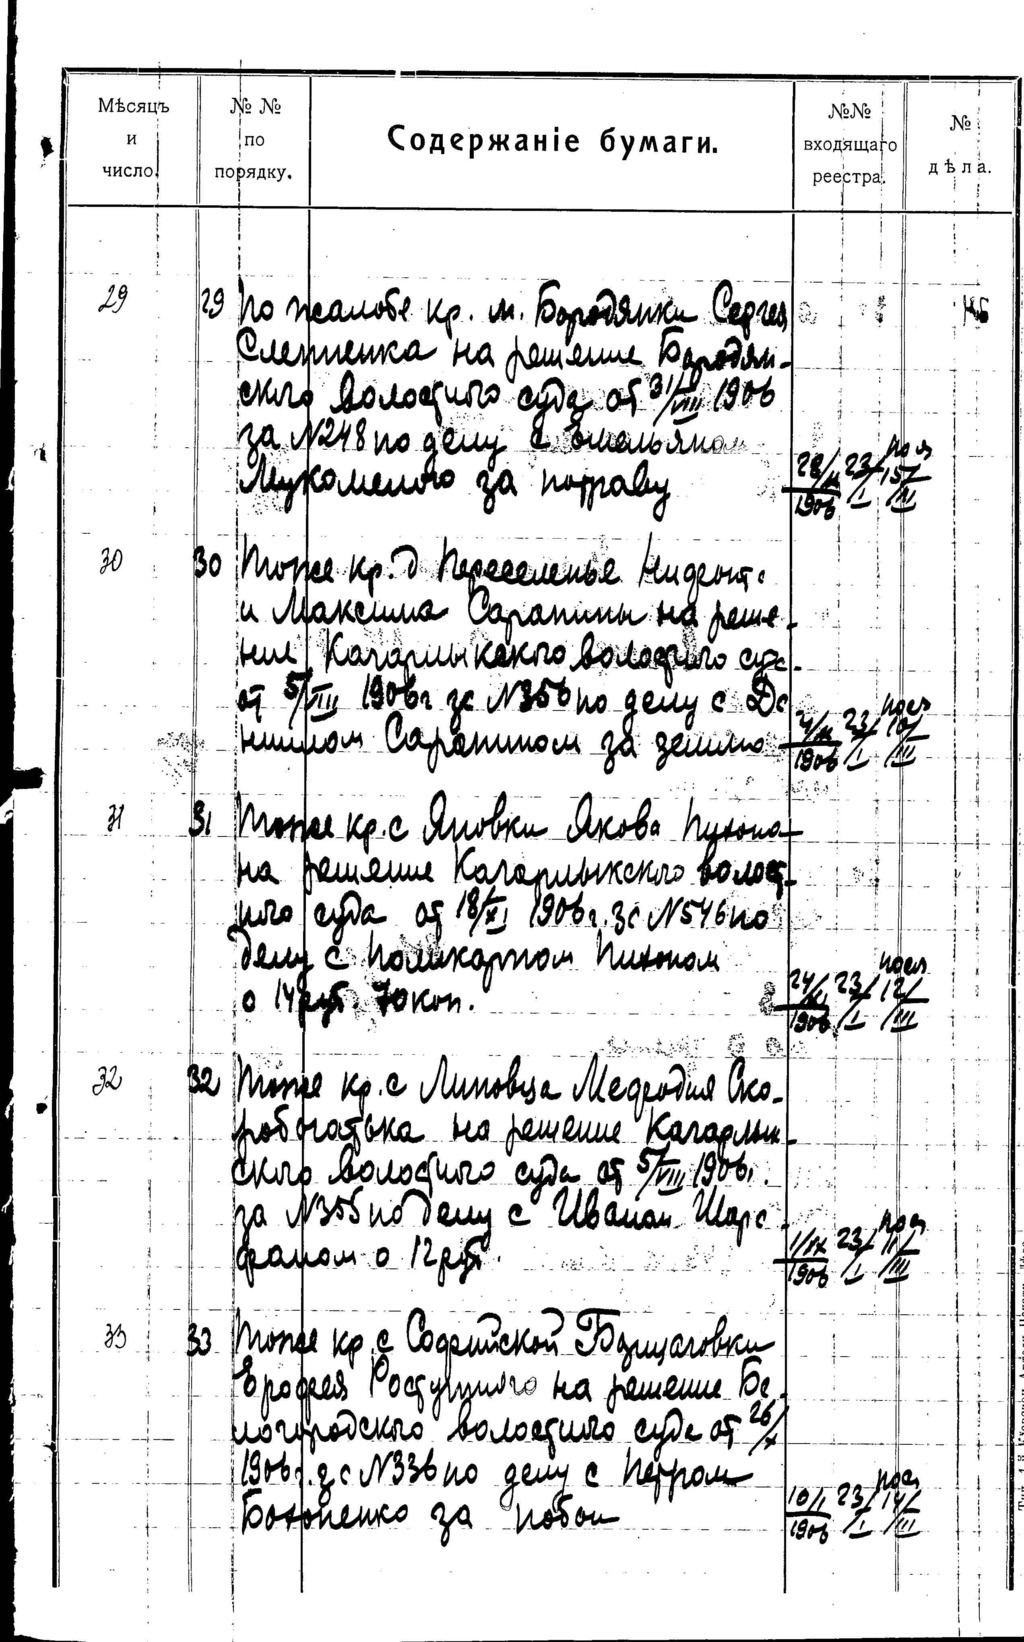 Мѣсяцъ
и
число.
№ №
по
порядку.
Содержаніе бумаги.
№№
входящаго
реестра.
№
дѣла.
29 29 По жалобе кр. м. Бородянки Сергея
Слепченка на решение Бородян-
ского волостного суда от 31/VIII 1906
за N248 по делу с Емельяном
за потраву
28/ 23/ посл 15/
1906 /I /III
30 30 Тоже кр. д
и Максима Сарапины на реше-
ние Кагарлыкского волостного суд.
от 5/ 1906 г за N356 по делу с Да
ниилом Сарапином за землю
23/ посл 10/
1906 /I /III
31 31 Тоже кр. с Яновки Якова
на решение Кагарлыкского волост-
ного суда от 18/XI 1906 г. за N546 по
делу с Поликарпом
о 14 руб. 70 коп.
24/ 23/ посл 12/
1906 /I /III
32 32 Тоже кр. с Липовца Мефодия Ско-
робогатька на решение Кагарлык-
ского волостного суда от 5/VIII 1906 г.
за N355 по делу с Иваном Шара-
фаном о 12 руб.
1/ 23/ посл 11/
1906 /I /III
33 33 Тоже кр. с Софийской Борщаговки
Ерофея на решение Бе-
логородского волостного суда от 26/X
1906 г. за N336 по делу с Петром
за побои
10/ 23/ посл 14/
1906 /I /III